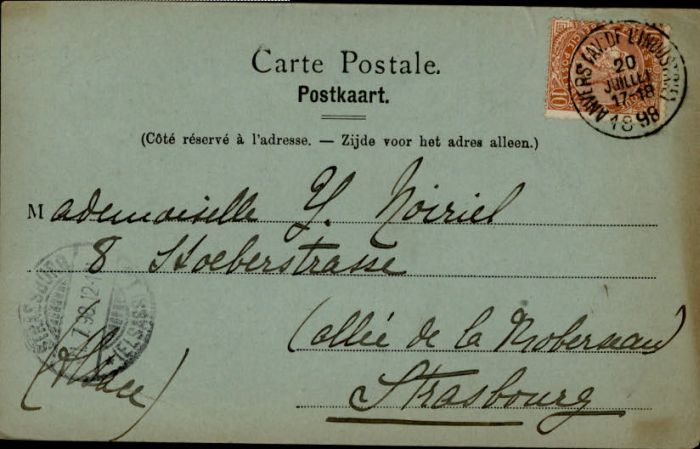 Carte Postale.
Postkaart.
(Côté réservé à l'adresse. — Zijde voor het adres alleen.)
ANVERS (AV. DE L'INDUSTRIE)
20
JUILLET
17-18
1898
10
Mademoiselle Y. Noiriel
8 Stoeberstrasse
(allée de la Robertsau)
Strasbourg
(Alsace)
STRASSBURG
7 98 12-
(ELSASS)